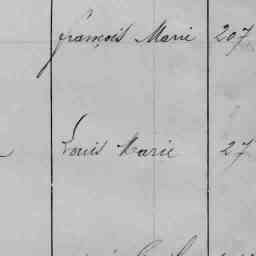 françois Marie 207
Louis Marie 27